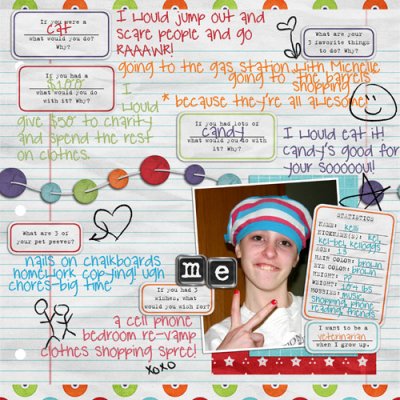 If you were a
cat
what would you do?
Why?
I would jump out and
scare people and go
RAAAWR!
What are your
3 favorite things
to do? Why?
going to the gas station with Michelle
going to the barrels
shopping
* because they're all awesome!
If you had a
$100
what would you do
with it? Why?
I
would
give $50 to charity
and spend the rest
on clothes.
If you had lots of
candy
what would you do with
it? Why?
I would eat it!
candy's good for
your sooooouul!
What are 3 of
your pet peeves?
nails on chalkboards
homework copying! ugh
chores-big time
me
If you had 3
wishes, what
would you wish for?
a cell phone
bedroom re-vamp
clothes shopping spree!
xoxo
STATISTICS
NAME: kelli
NICKNAME(S): kel
kel-bel, kelloggs
AGE:
HAIR COLOR: brown
EYE COLOR: brown
HEIGHT:
WEIGHT: 104 lbs
HOBBIES: music,
shopping, phone
reading, friends
I want to be a
veterinarian
when I grow up.